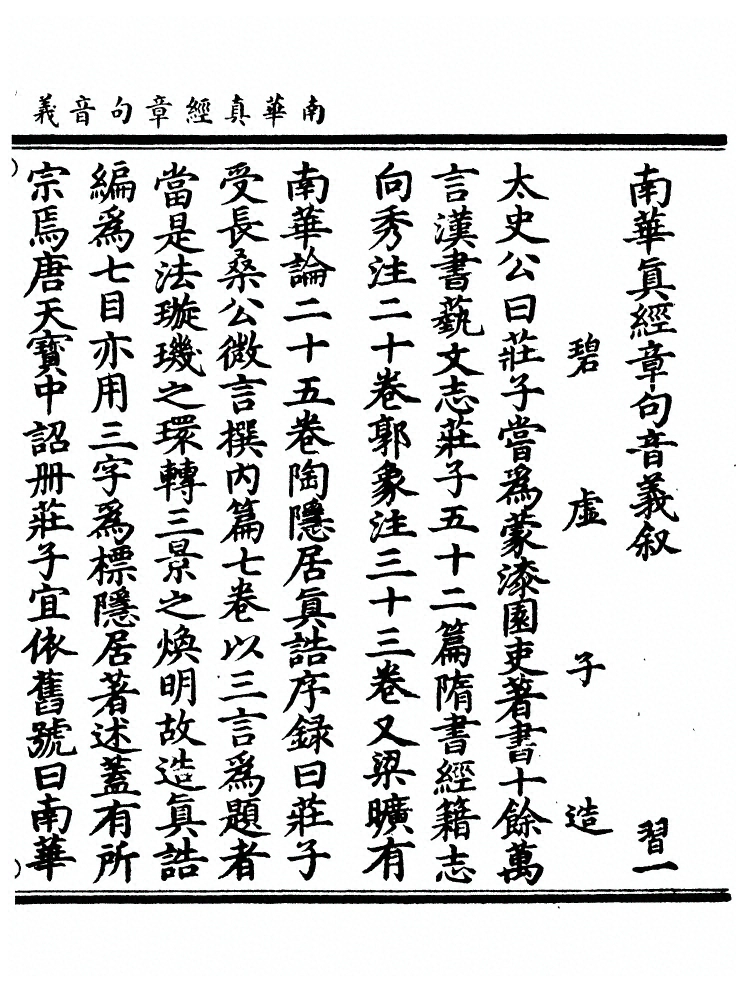 南華真經章句音義
南華眞經章句音義叙 習一
碧虛子造
太史公曰莊子嘗爲蒙漆園吏著書十餘萬
言漢書藝文志莊子五十二篇隋書經籍志
向秀注二十卷郭象注三十三卷又梁曠有
南華論二十五卷陶隱居眞誥序録曰莊子
受長桑公微言撰内篇七卷以三言爲題者
當是法璇璣之環轉三景之煥明故造眞誥
編爲七目亦用三字爲標隱居著述蓋有所
宗焉唐天寶中詔册莊子宜依舊號曰南華